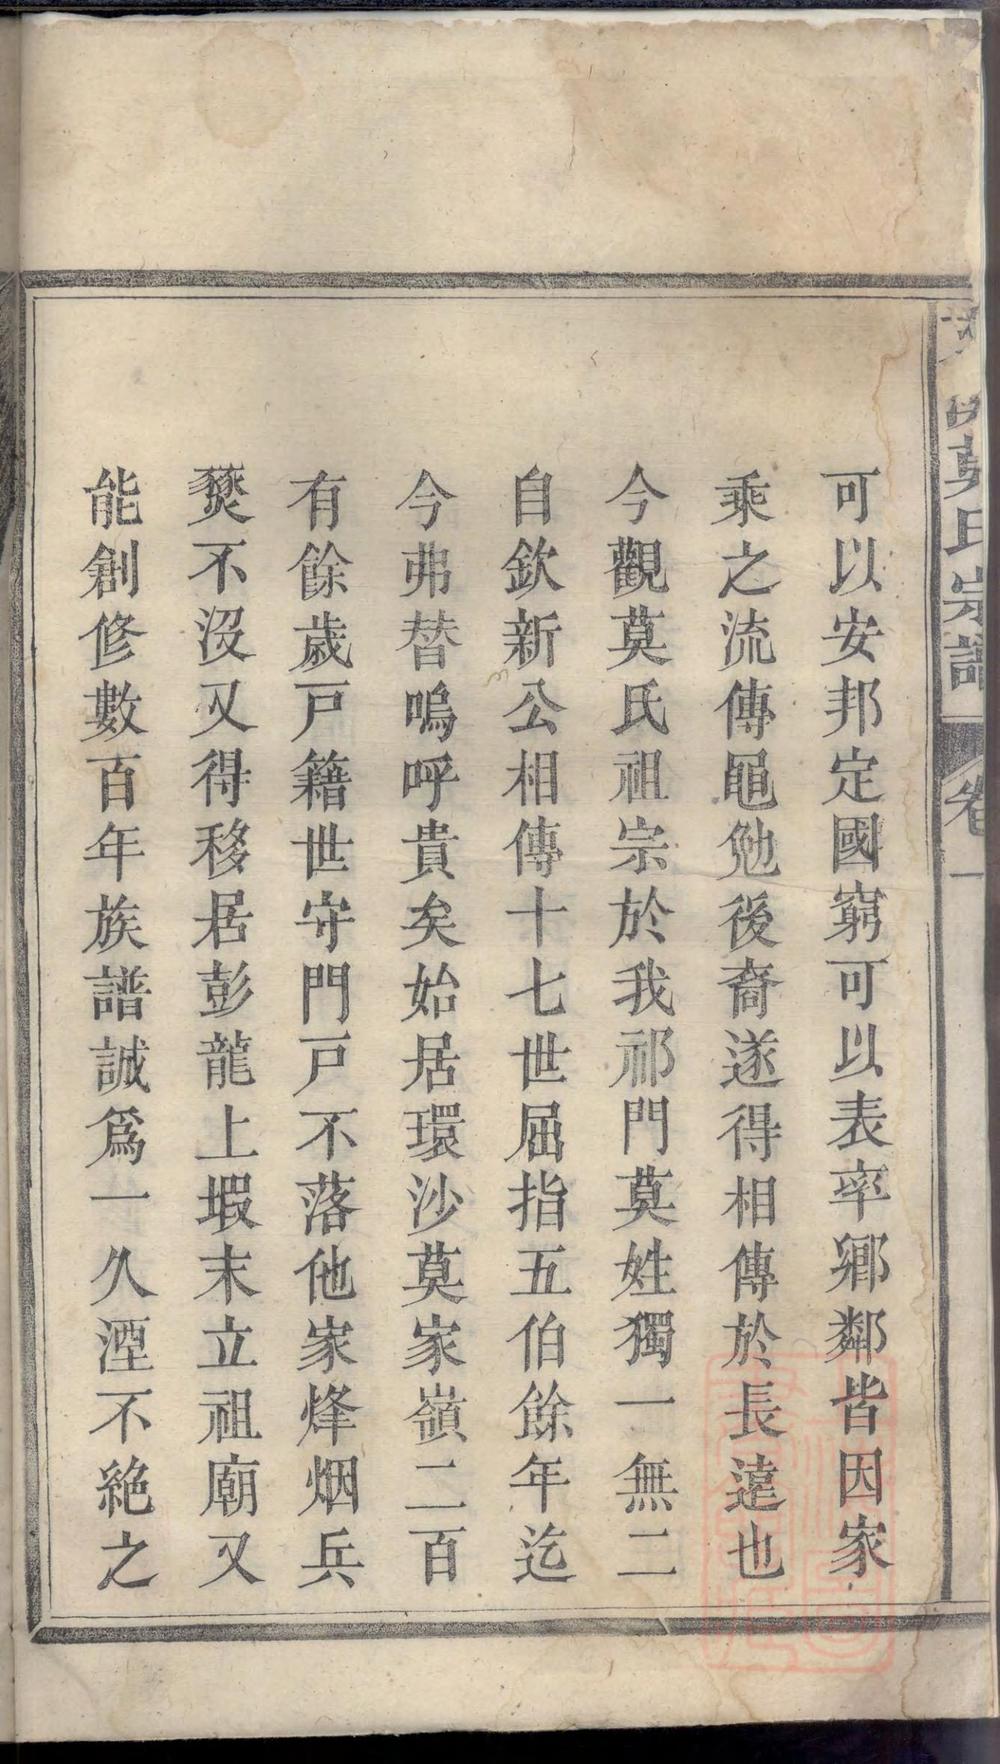 莫氏宗譜 卷一
可以安邦定國窮可以表率鄉鄰皆因家
乘之流傳黽勉後裔遂得相傳於長遠也
今觀莫氏祖宗於我祁門莫姓獨一無二
自欽新公相傳十七世屈指五伯餘年迄
今弗替嗚呼貴矣始居環沙莫家嶺二百
有餘歲戸籍世守門戸不落他家烽烟兵
燹不沒又得移居彭龍上塅末立祖廟又
能創修數百年族譜誠爲一久湮不絶之